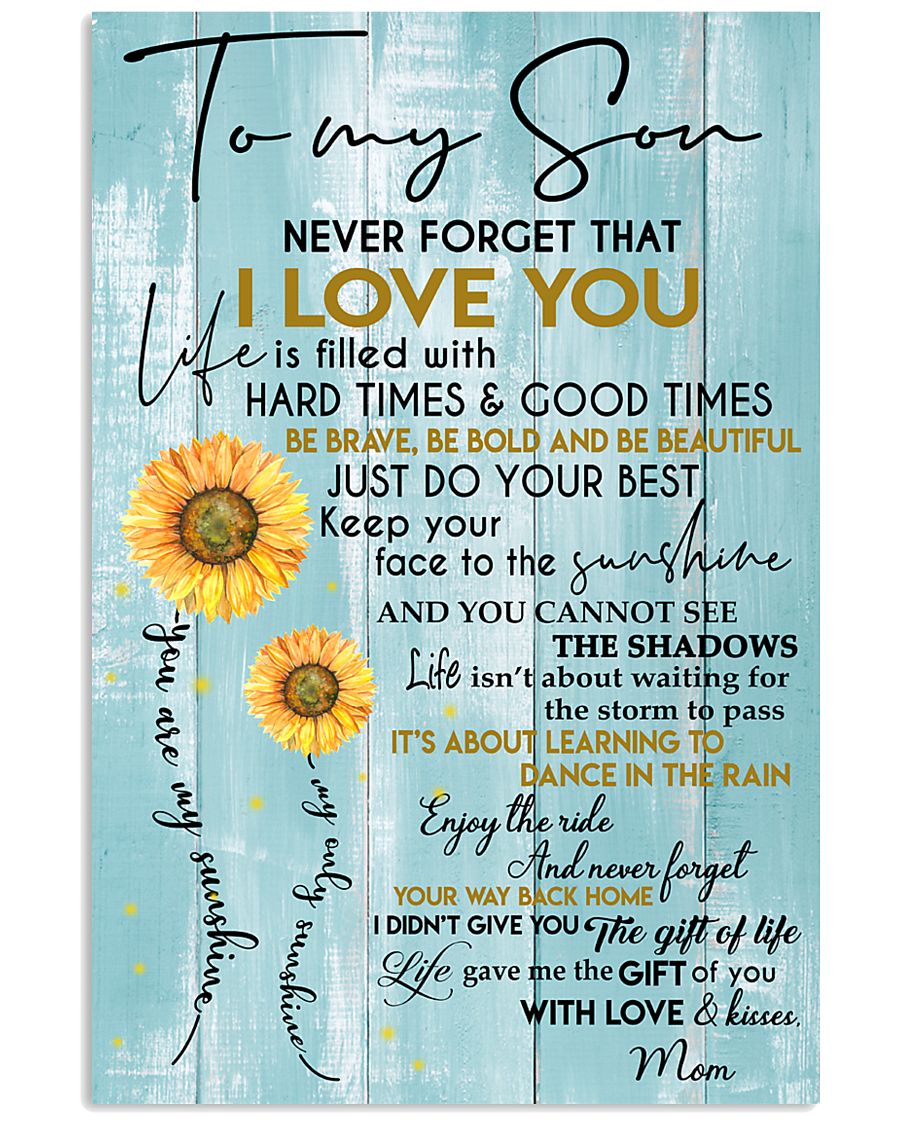 To my Son
NEVER FORGET THAT
I LOVE YOU
Life is filled with
HARD TIMES & GOOD TIMES
BE BRAVE, BE BOLD AND BE BEAUTIFUL
JUST DO YOUR BEST
Keep your
face to the sunshine
AND YOU CANNOT SEE
THE SHADOWS
Life isn't about waiting for
the storm to pass
IT'S ABOUT LEARNING TO
DANCE IN THE RAIN
Enjoy the ride
And never forget
YOUR WAY BACK HOME
I DIDN'T GIVE YOU The gift of life
Life gave me the GIFT of you
WITH LOVE & kisses,
Mom
you are my sunshine
my only sunshine